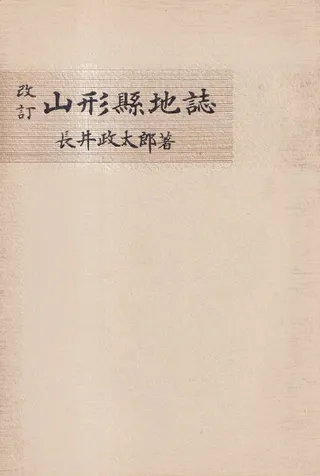 改訂
山形縣地誌
長井政太郎著